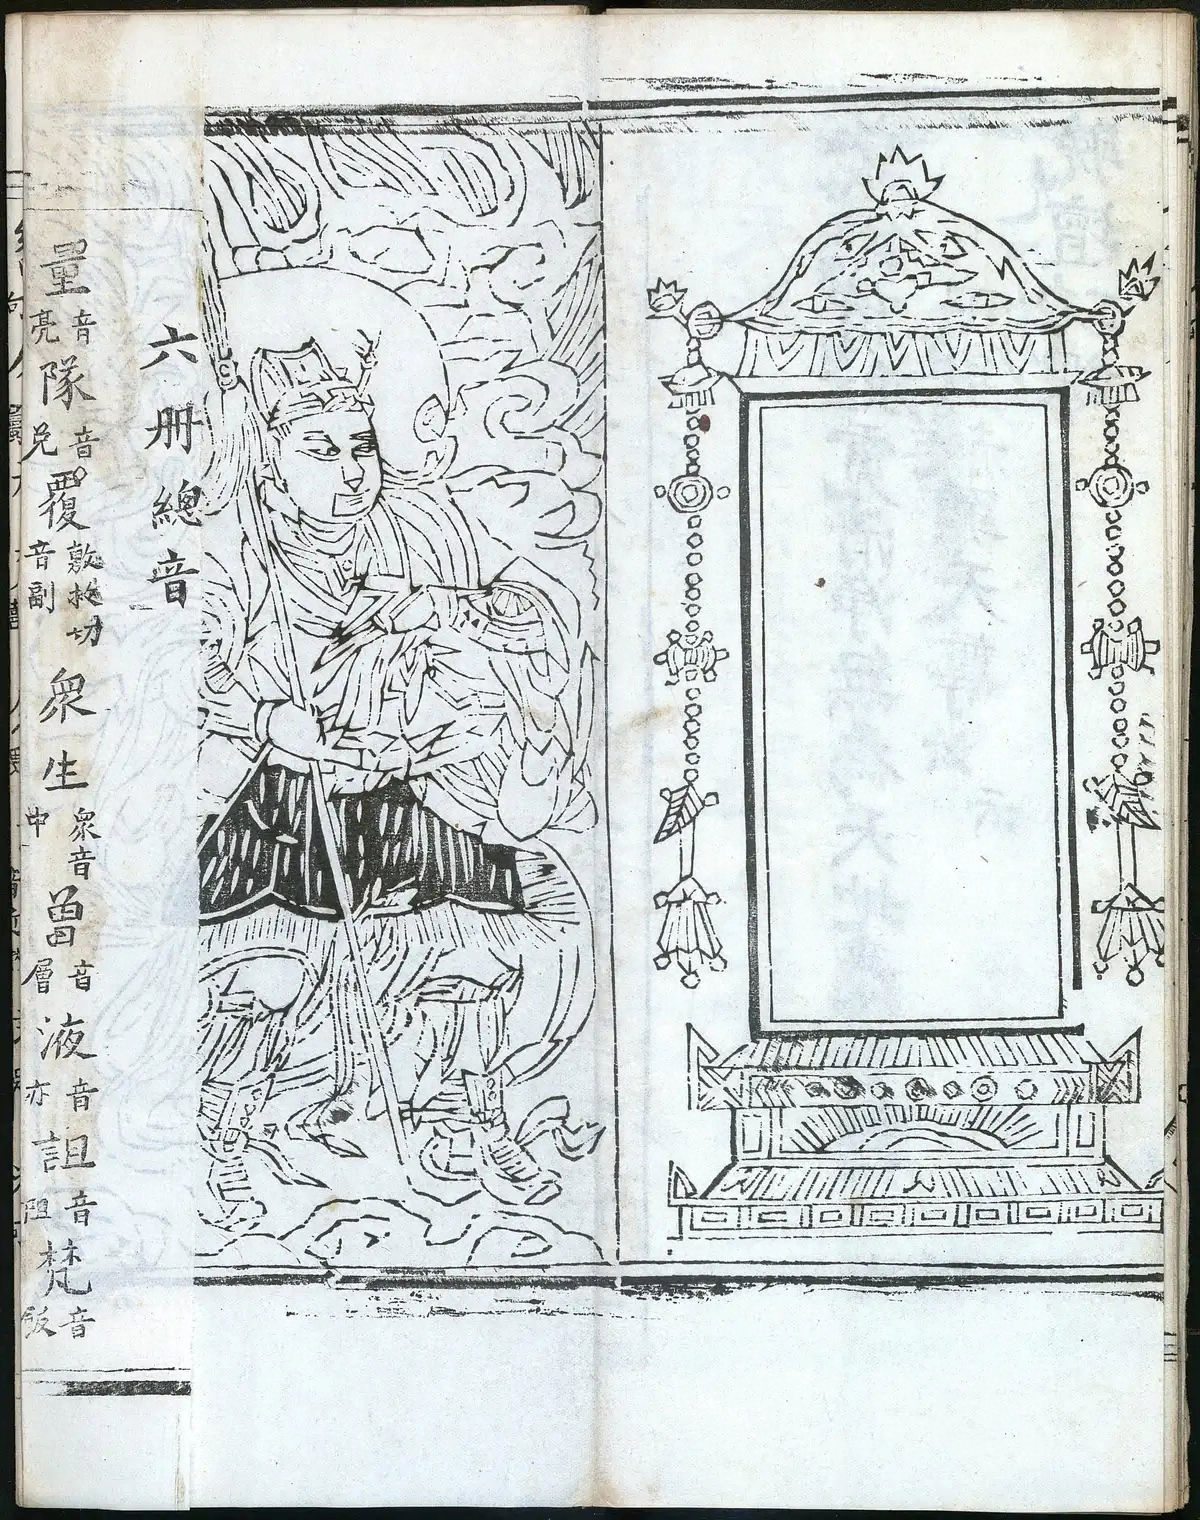 六冊總音
量音亮隊音兑覆敷救切音副衆生衆音中曾音層液音亦詛音阻梵音飯